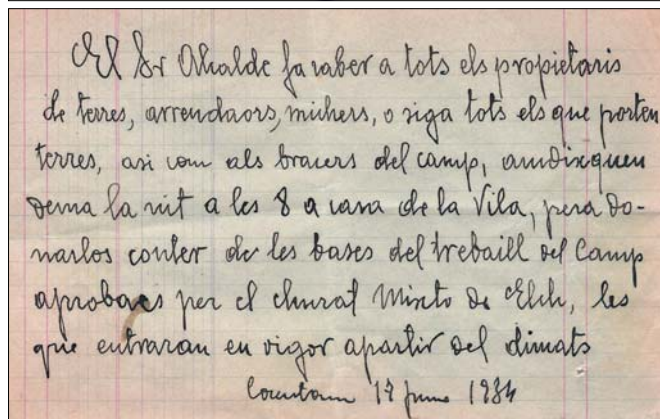 El Sr Alcalde fa saber a tots els propietaris
de terres, arrendaors, michers, o siga tots els que porten
terres, asi com als bracers del camp, amdixquen
dema la nit a les 8 a casa de la Vila, pera do-
narlos conter de les bases del trebaill del Camp
aprobaes per el churat Mixto de Elch, les
que entraran en vigor apartir del dimats
Cocentaina 17 Juny 1934